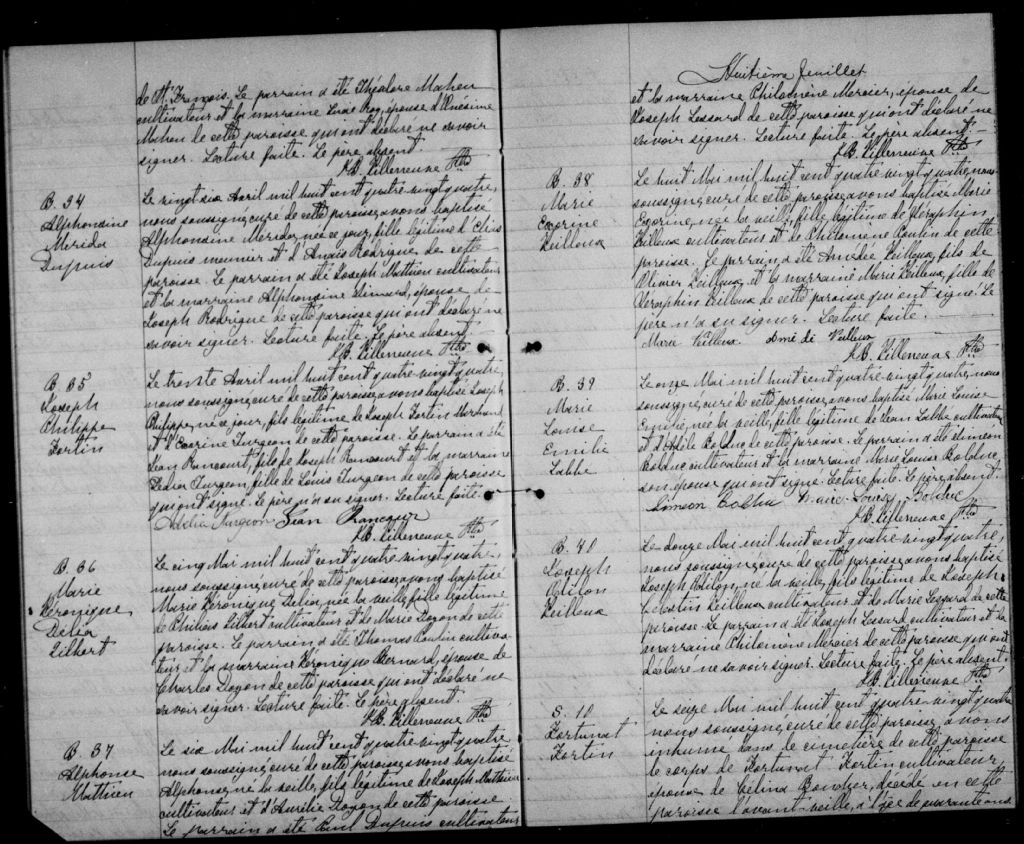 de St. François. Le parrain a été Théodore Maheu
cultivateur et la marraine Luce Roy, épouse d'Onésime
Maheu de cette paroisse qui ont déclaré ne savoir
signer. Lecture faite. Le père absent.
J.B. Villeneuve Ptre
B. 34
Alphonsine
Merida
Dupuis
Le vingt six Avril mil huit cent quatre vingt quatre,
nous soussigné, curé de cette paroisse, avons baptisé
Alphonsine Merida, née ce jour, fille légitime d'Elias
Dupuis meunier et d'Anaïs Rodrigue de cette
paroisse. Le parrain a été Joseph Mathieu cultivateur
et la marraine Alphonsine Simard, épouse de
Joseph Rodrigue de cette paroisse qui ont déclaré ne
savoir signer. Lecture faite. Le père absent.
J.B. Villeneuve Ptre
B. 35
Joseph
Philippe
Fortin
Le trente Avril mil huit cent quatre vingt quatre,
nous soussigné, curé de cette paroisse, avons baptisé Joseph
Philippe, né ce jour, fils légitime de Joseph Fortin Marchand
et d'Exorine Turgeon de cette paroisse. Le parrain a été
Jean Rancourt, fils de Joseph Rancourt et la marraine
Delia Turgeon, fille de Louis Turgeon de cette paroisse
qui ont signé. Le père n'a su signer. Lecture faite.
Adelia Turgeon Jean Rancour
J.B. Villeneuve Ptre
B. 36
Marie
Véronique
Délia
Gilbert
Le cinq Mai mil huit cent quatre vingt quatre
nous soussigné, curé de cette paroisse, avons baptisé
Marie Véronique Delia, née la veille, fille légitime
de Philias Gilbert cultivateur et de Marie Doyon de cette
paroisse. Le parrain a été Thomas Poulin cultiva-
teur et la marraine Véronique Bernard, épouse de
Charles Doyon de cette paroisse qui ont déclaré ne
savoir signer. Lecture faite. Le père absent.
J.B. Villeneuve Ptre
B. 37
Alphonse
Mathieu
Le six Mai mil huit cent quatre vingt quatre
nous soussigné, curé de cette paroisse, avons baptisé
Alphonse, né la veille, fils légitime de Joseph Mathieu
cultivateur et d'Aurélie Doyon de cette paroisse
Le parrain a été Paul Dupuis cultivateur
Huitième feuillet
et la marraine Philomène Mercier, épouse de
Joseph Lessard de cette paroisse qui ont déclaré ne
savoir signer. Lecture faite. Le père absent.
J.B. Villeneuve Ptre
B. 38
Marie
Exorine
Veilleux
Le huit Mai mil huit cent quatre vingt quatre, nous
soussigné, curé de cette paroisse, avons baptisé Marie
Exorine, née la veille, fille légitime de Séraphin
Veilleux cultivateur et de Philomène Poulin de cette
paroisse. Le parrain a été Amédée Veilleux, fils de
Olivier Veilleux, et la marraine Marie Veilleux, fille de
Séraphin Veilleux de cette paroisse qui ont signé. Le
père n'a su signer. Lecture faite.
Marie Veilleux Amé di Veilleux
J.B. Villeneuve Ptre
B. 39
Marie
Louise
Emilie
Labbe
Le onze Mai mil huit cent quatre vingt quatre, nous
soussigné, curé de cette paroisse, avons baptisé Marie Louise
Emilie, née la veille, fille légitime de Jean Labbe cultivateur
et d'Adèle Bolduc de cette paroisse. Le parrain a été Simeon
Bolduc cultivateur et la marraine Marie Louise Bolduc,
son épouse qui ont signé. Lecture faite. Le père absent.
Simeon Bolduc Marie Louise Bolduc
J.B. Villeneuve Ptre
B. 40
Joseph
Odilon
Veilleux
Le douze Mai mil huit cent quatre vingt quatre,
nous soussigné, curé de cette paroisse, avons baptisé
Joseph Odilon, né la veille, fils légitime de Joseph
Celestin Veilleux cultivateur et de Marie Lessard de cette
paroisse. Le parrain a été Joseph Lessard cultivateur et la
marraine Philomène Mercier de cette paroisse, qui ont
déclaré ne savoir signer. Lecture faite. Le père absent.
J.B. Villeneuve Ptre
S. 10
Fortunat
Fortin
Le seize Mai mil huit cent quatre vingt quatre
nous soussigné, curé de cette paroisse avons
inhumé dans le cimetière de cette paroisse
le corps de Fortunat Fortin cultivateur,
époux de Celina Boucher, décédé en cette
paroisse l'avant-veille, à l'âge de quarante ans